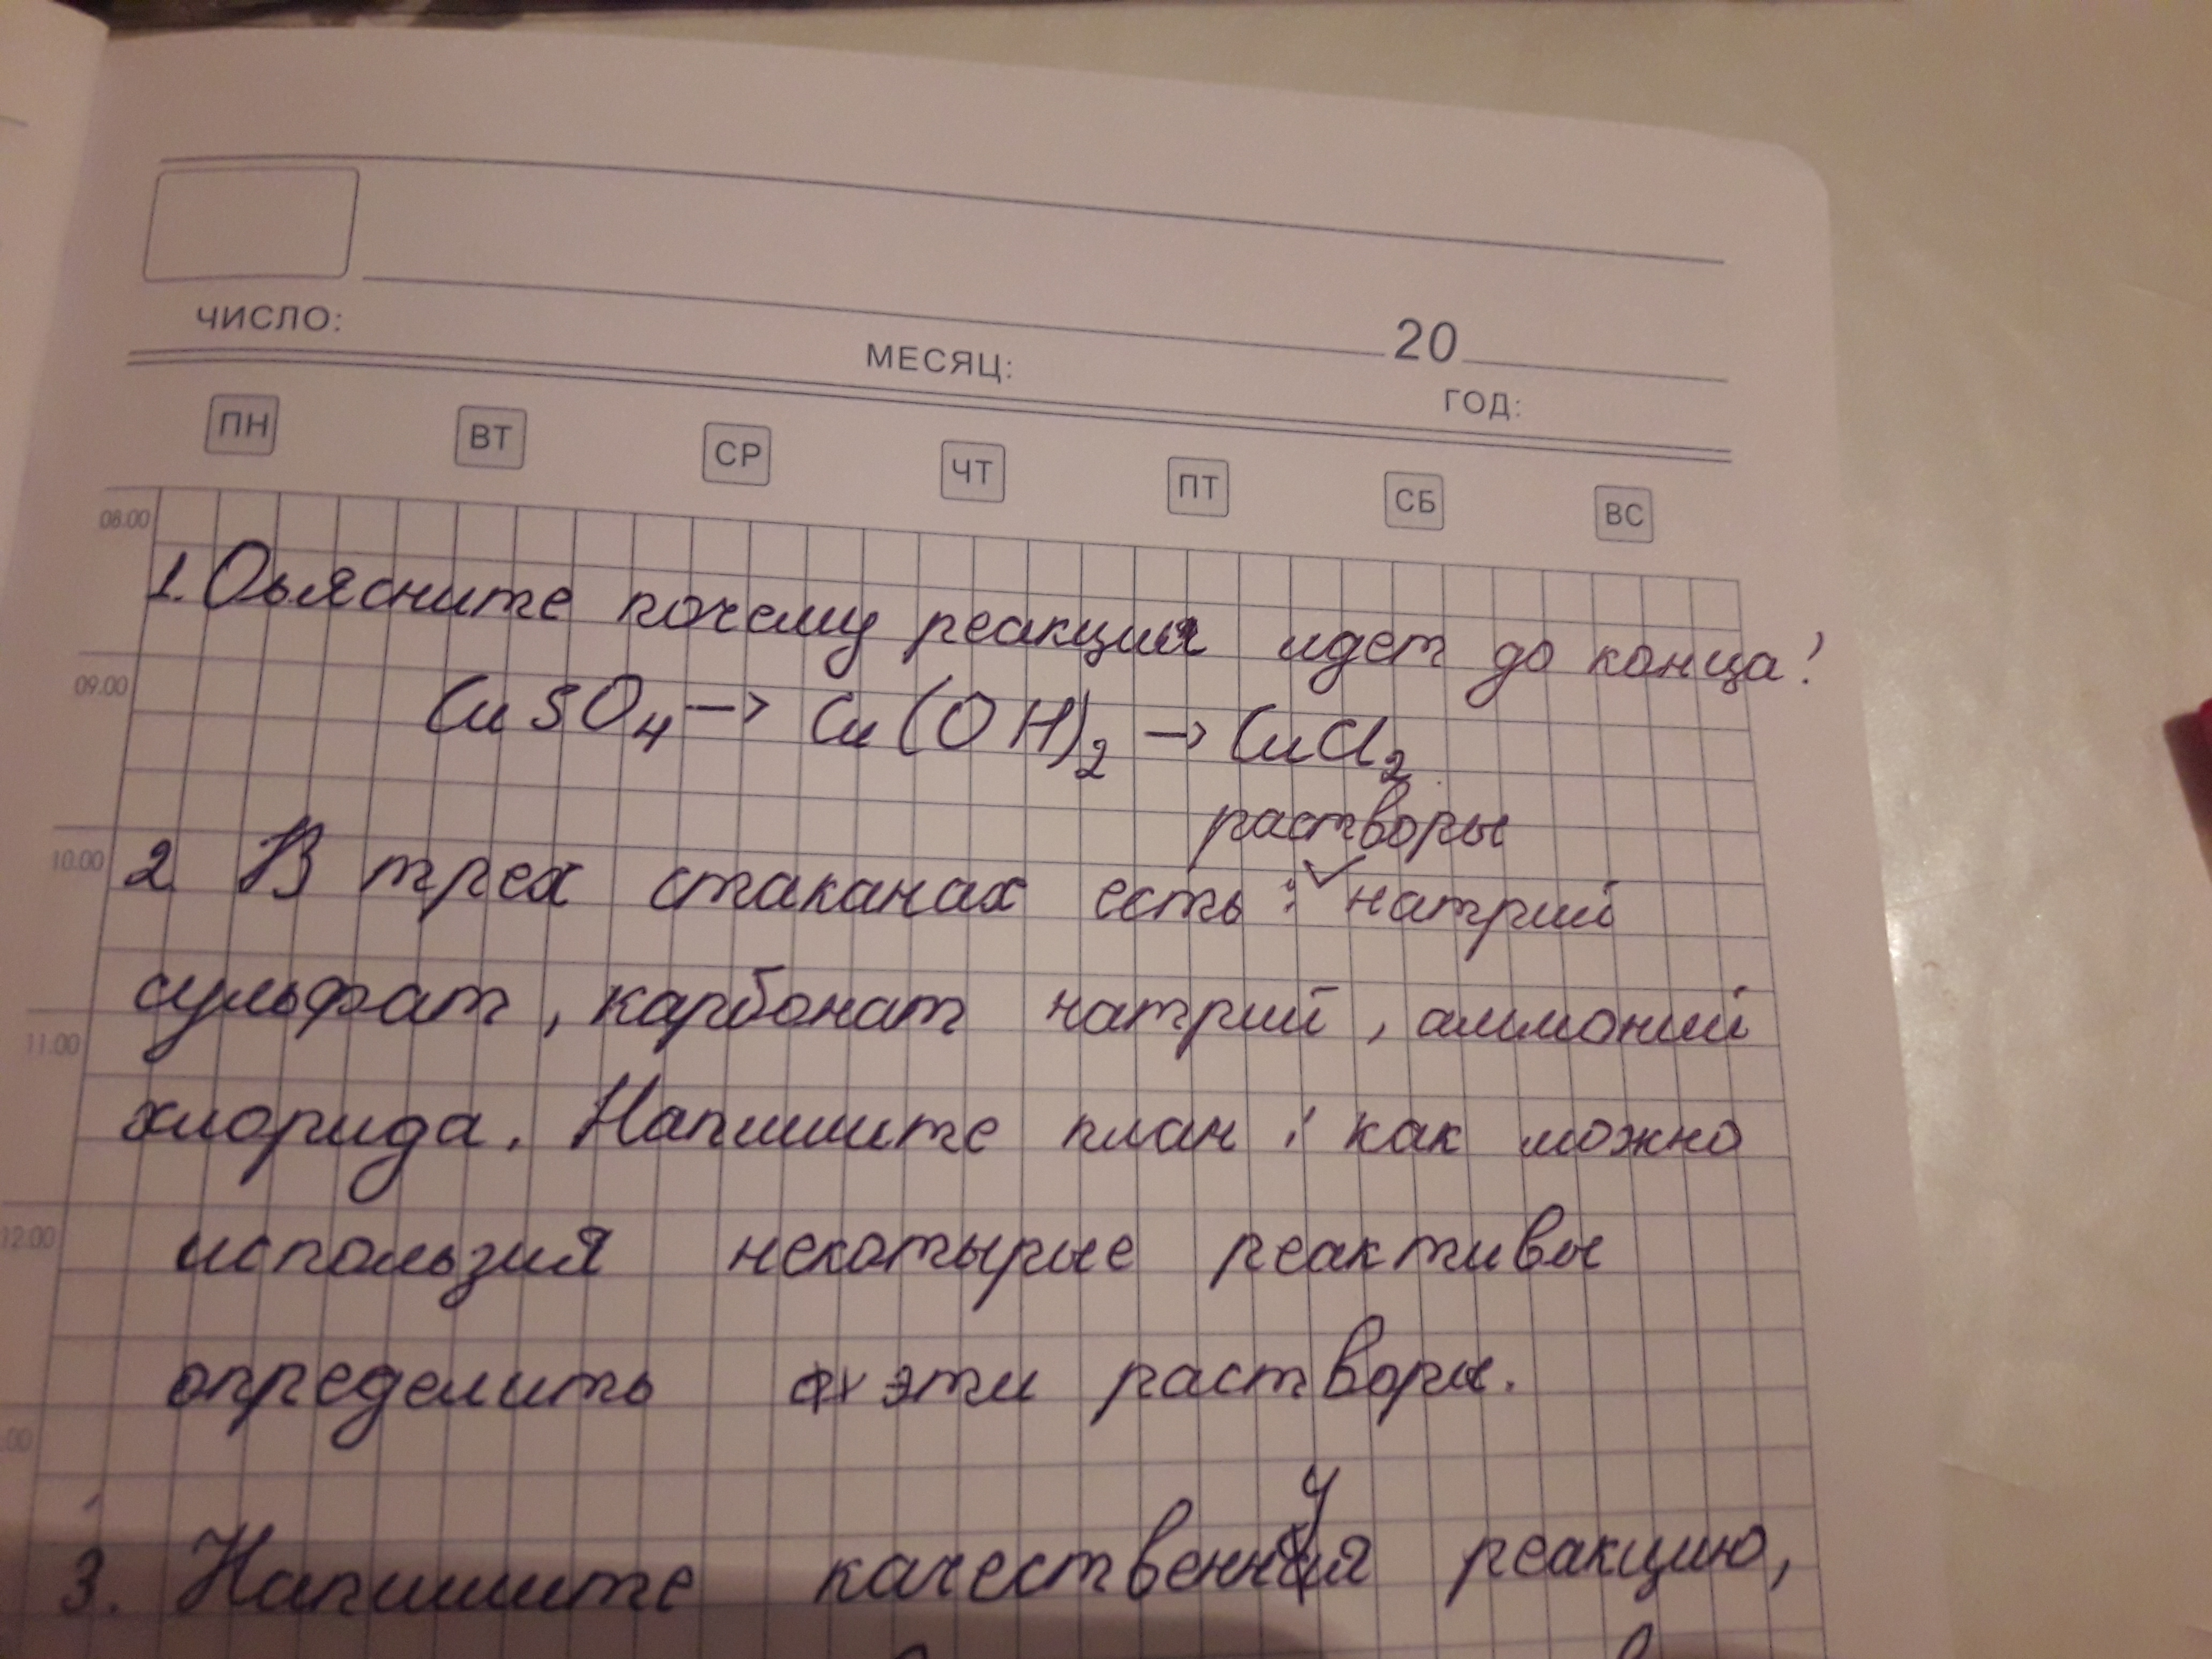 ЧИСЛО:
МЕСЯЦ:
20
ГОД:
ПН ВТ СР ЧТ ПТ СБ ВС
08.00
1. Оьясните почему реакция идет до конца!
09.00
CuSO4 -> Cu(OH)2 -> CuCl2
растворы
10.00
2 В трех стаканах есть: натрий
сульфат, карбонат натрий, аммоний
11.00
хлорида. Напишите план: как можно
12.00
использия некотырые реактивы
определить эти растворы.
:00
3. Напишите качественную реакцию,